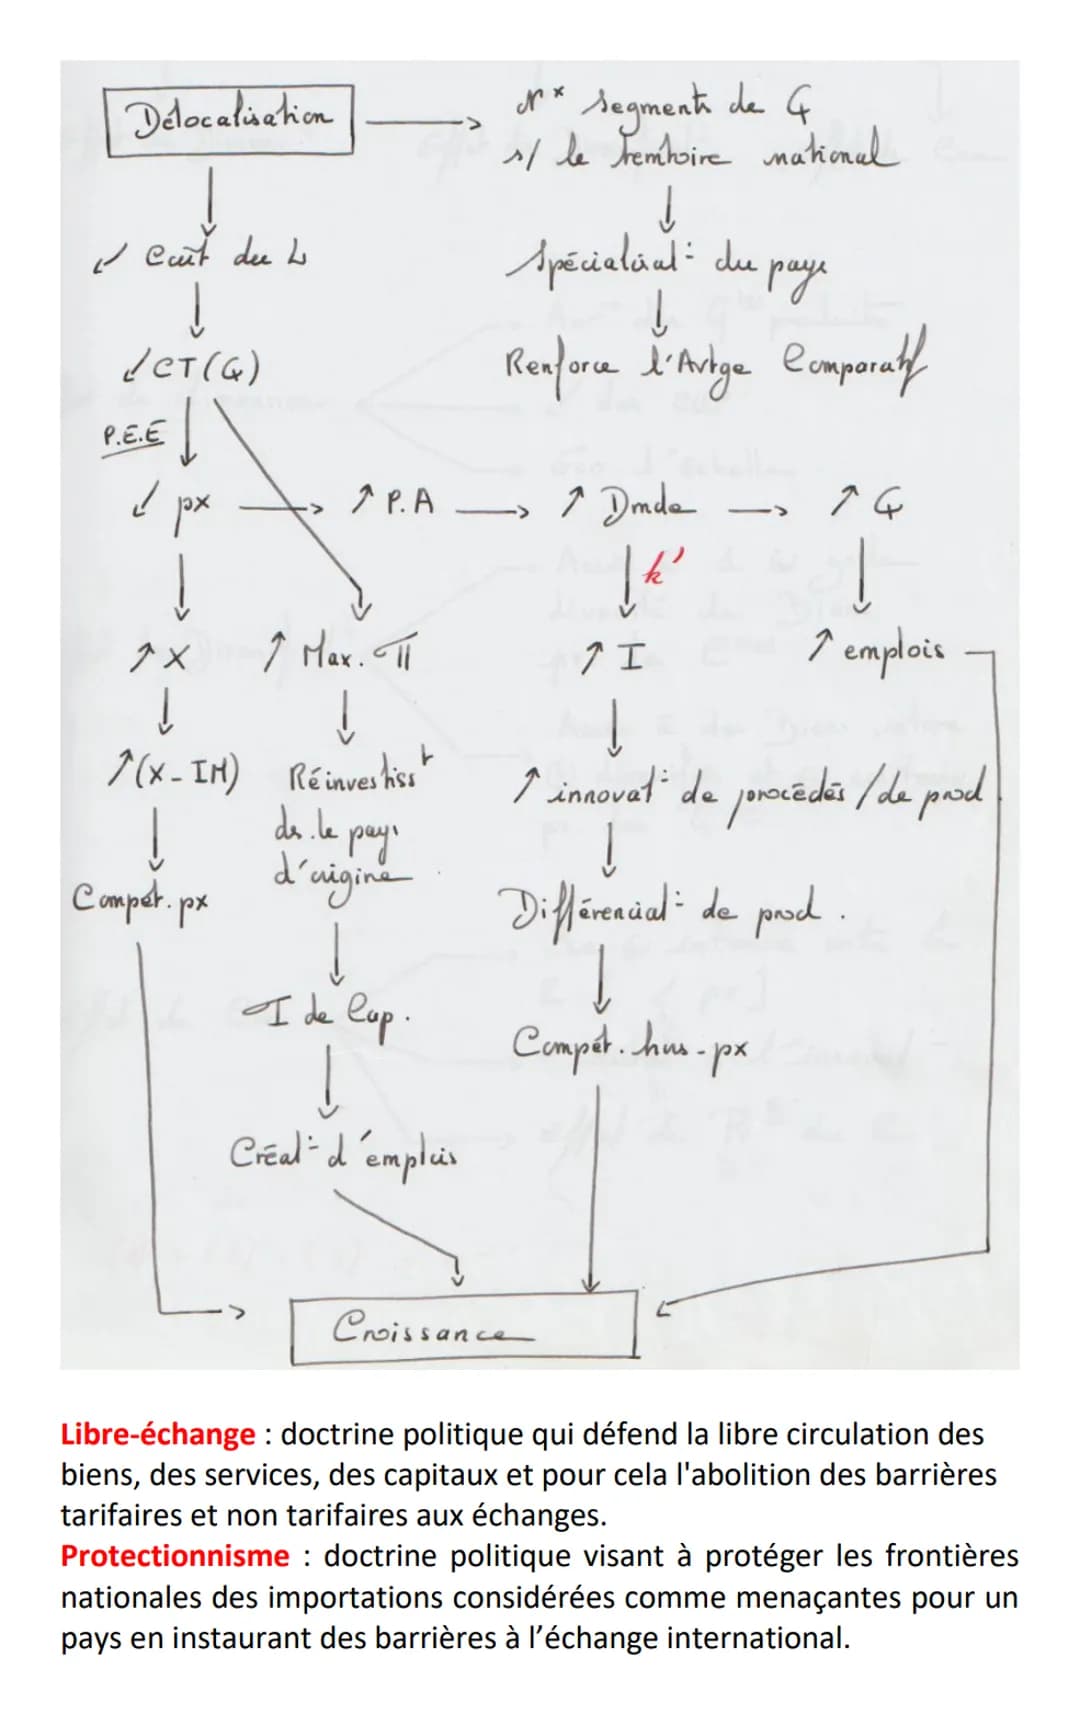 Délocalisation
Nx segments de Q
s/ le territoire national
↙ Coût du L
Spécialisat° du pays
↙ CT(Q)
Renforce l'Avtge Comparatif
P.E.E
↙ px → ↗ P.A → ↗ Dmde → ↗ Q
k'
↗ X
↗ Max. π
↗ I
↗ emplois
↗ (X - IM)
Réinvestisst
ds le pays
d'origine
↗ innovat° de procédés / de prod
Compét. px
Différenciat° de prod.
I de Cap.
Compét. hors-px
Créat° d'emplois
Croissance
Libre-échange : doctrine politique qui défend la libre circulation des
biens, des services, des capitaux et pour cela l'abolition des barrières
tarifaires et non tarifaires aux échanges.
Protectionnisme : doctrine politique visant à protéger les frontières
nationales des importations considérées comme menaçantes pour un
pays en instaurant des barrières à l’échange international.